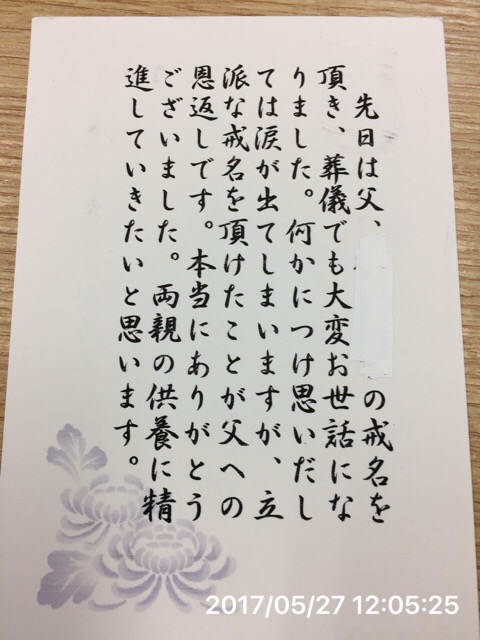 先日は父、の戒名を
頂き、葬儀でも大変お世話にな
りました。何かにつけ思いだし
ては涙が出てしまいますが、立
派な戒名を頂けたことが父への
恩返しです。本当にありがとう
ございました。両親の供養に精
進していきたいと思います。
2017/05/27 12:05:25